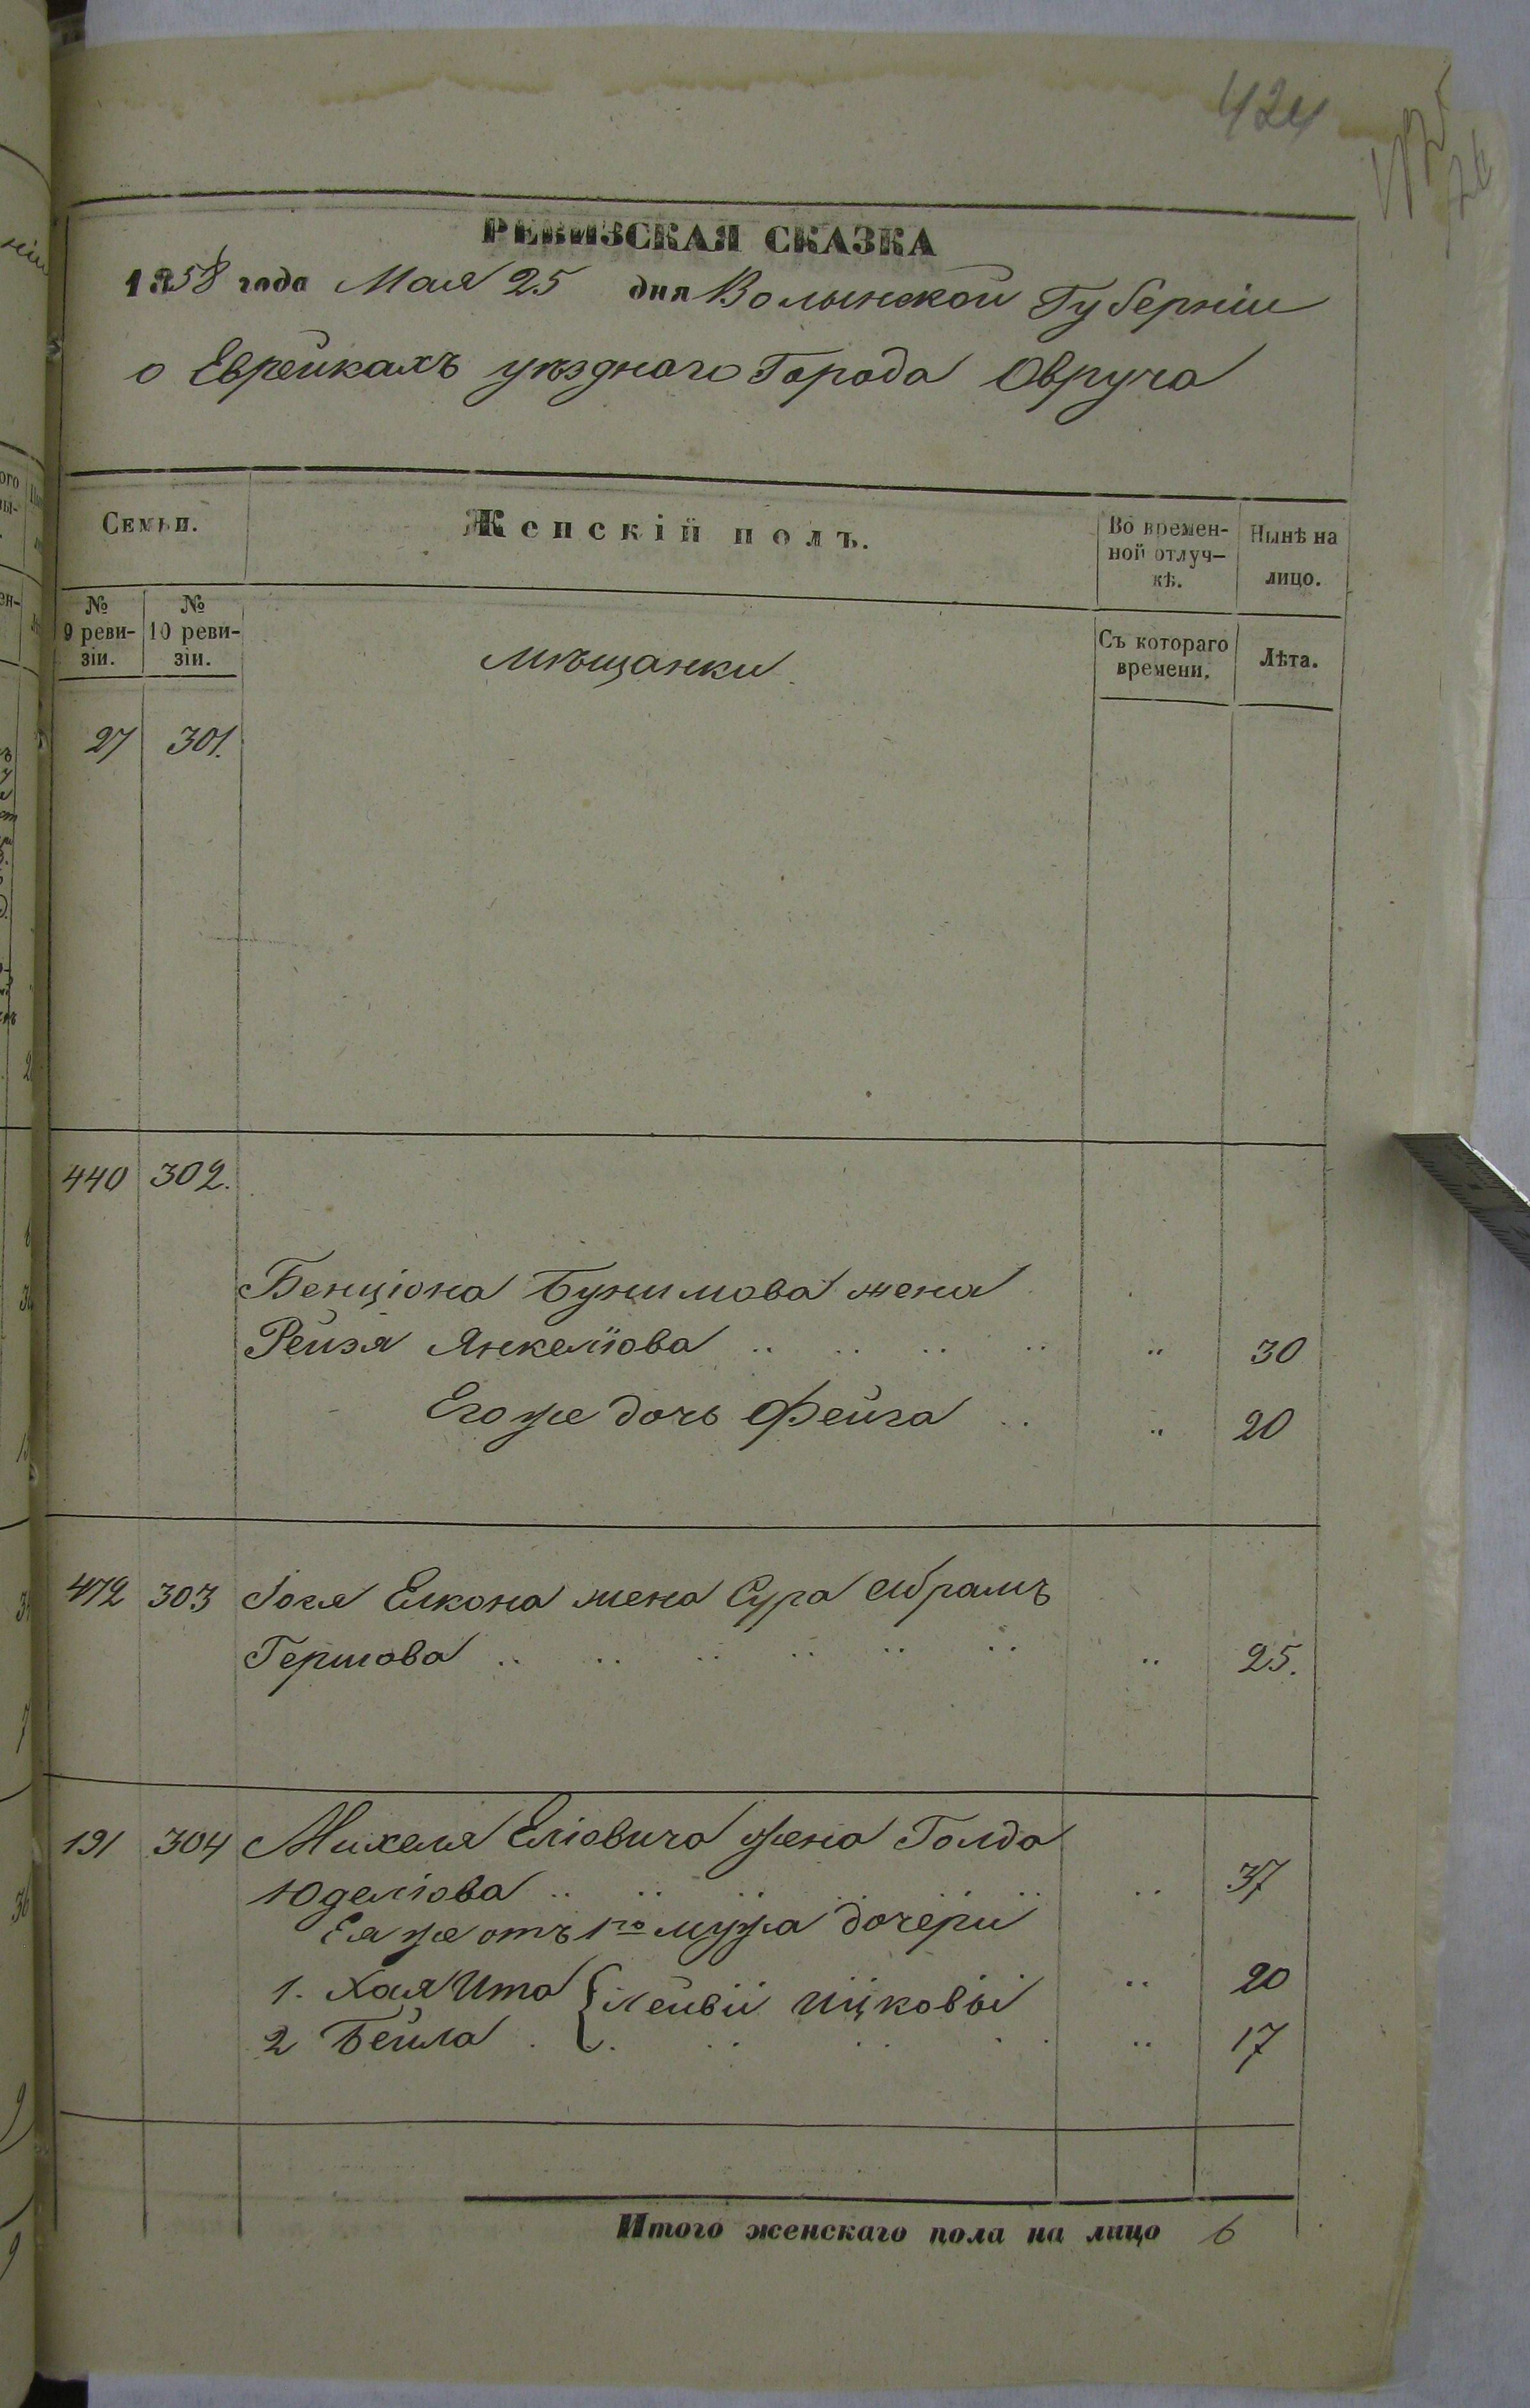 424
РЕВИЗСКАЯ СКАЗКА
1858 года Мая 25 дня Волынской Губерніи
о Еврейкахъ уѣзднаго Города Овруча
Семьи. Женскій полъ. Во времен- Нынѣ на
ной отлуч- лицо.
кѣ.
№ № Съ котораго Лѣта.
9 реви- 10 реви- времени.
зіи. зіи.
мѣщанки
27 301.
440 302.
Бенціона Бунимова жена
Рейзя Янкеліова 30
Его же дочь Фейга 20
472 303 жена Сура Абрамъ
Гершова 25.
191 304 Михеля Еліовича жена Голда
Юделіова 37
Ея же отъ 1го мужа дочери
1. Хая Ита Лейвіи Ицковы 20
2 Бейла 17
Итого женскаго пола на лицо 6